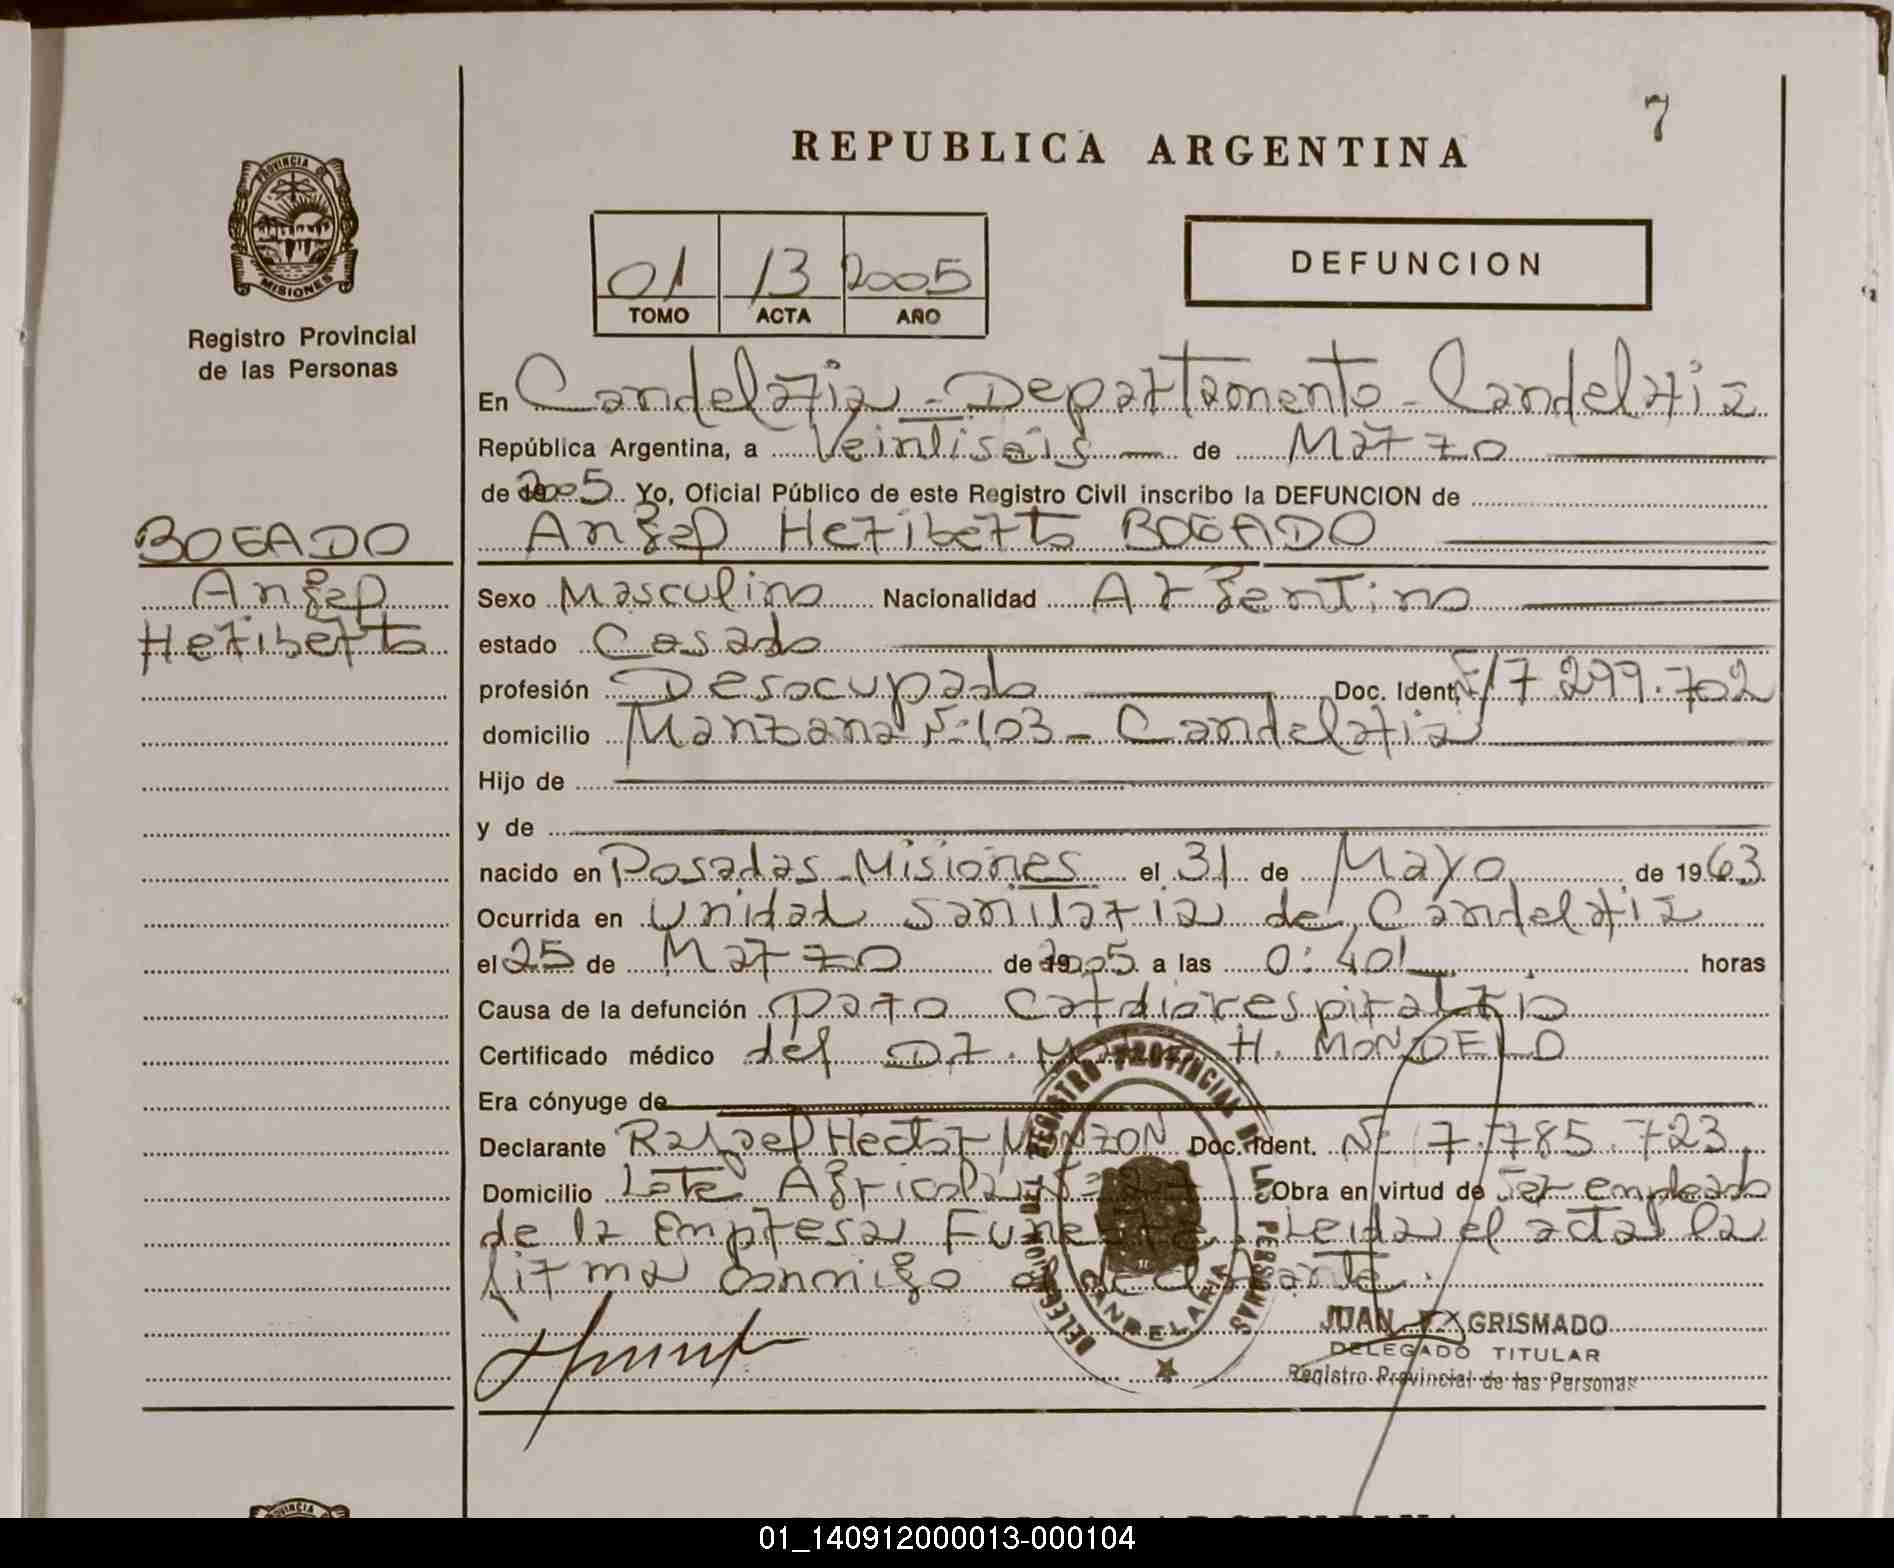 7
REPUBLICA ARGENTINA
PROVINCIA DE
MISIONES
Registro Provincial
de las Personas
01 13 2005
TOMO ACTA AÑO
DEFUNCION
En Candelaria - Departamento - Candelaria
República Argentina, a Veintiseis de Marzo
de 2005. Yo, Oficial Público de este Registro Civil inscribo la DEFUNCION de
BOGADO
Angel Heriberto BOGADO
Angel
Heriberto
Sexo Masculino Nacionalidad Argentino
estado Casado
profesión Desocupado Doc. Ident. Nº 17.299.702
domicilio Manzana Nº 103 - Candelaria
Hijo de
y de
nacido en Posadas - Misiones el 31 de Mayo de 1963
Ocurrida en Unidad Sanitaria de Candelaria
el 25 de Marzo de 2005 a las 0:40! horas
Causa de la defunción Paro Cardiorespiratorio
Certificado médico del Dr. H. MONDELO
Era cónyuge de
Declarante Rafael Hector MONZON Doc. Ident. Nº 17.785.723
Domicilio Lote Agricola Obra en virtud de Ser empleado
de la Empresa Funebre. Leida el acta la
firma conmigo el declarante.
DELEGACION DEL REGISTRO PROVINCIAL DE LAS PERSONAS
CANDELARIA
JUAN GRISMADO
DELEGADO TITULAR
Registro Provincial de las Personas
PROVINCIA
REPUBLICA ARGENTINA
01_140912000013-000104